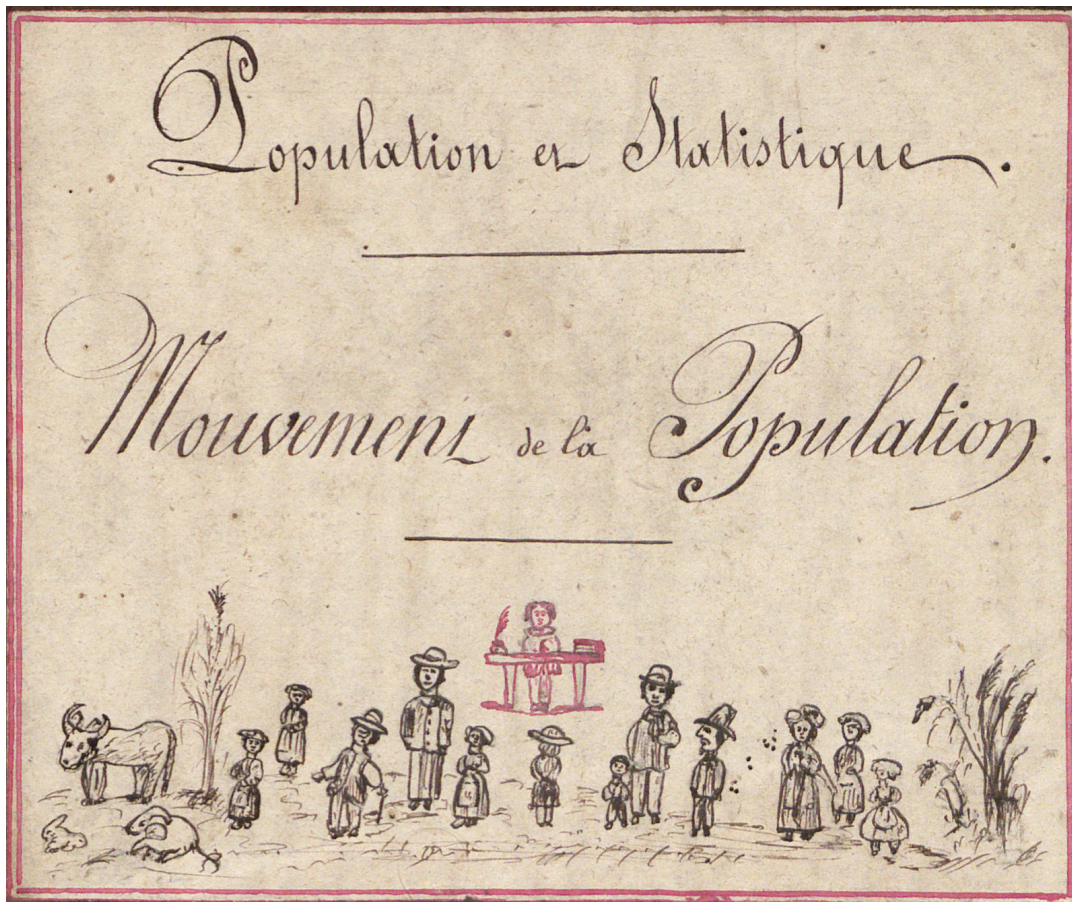 Population et Statistique.
Mouvement de la Population.